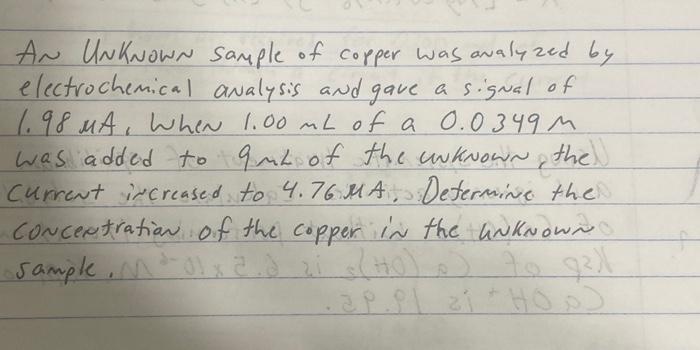 AN UNKNOWN sample of copper was analyzed by
electrochemical analysis and gave a signal of
1.98 µA. When 1.00 mL of a 0.0349 M
was added to 9 mL of the unknown, the
current increased to 4.76 µA. Determine the
concentration of the copper in the unknown
sample.